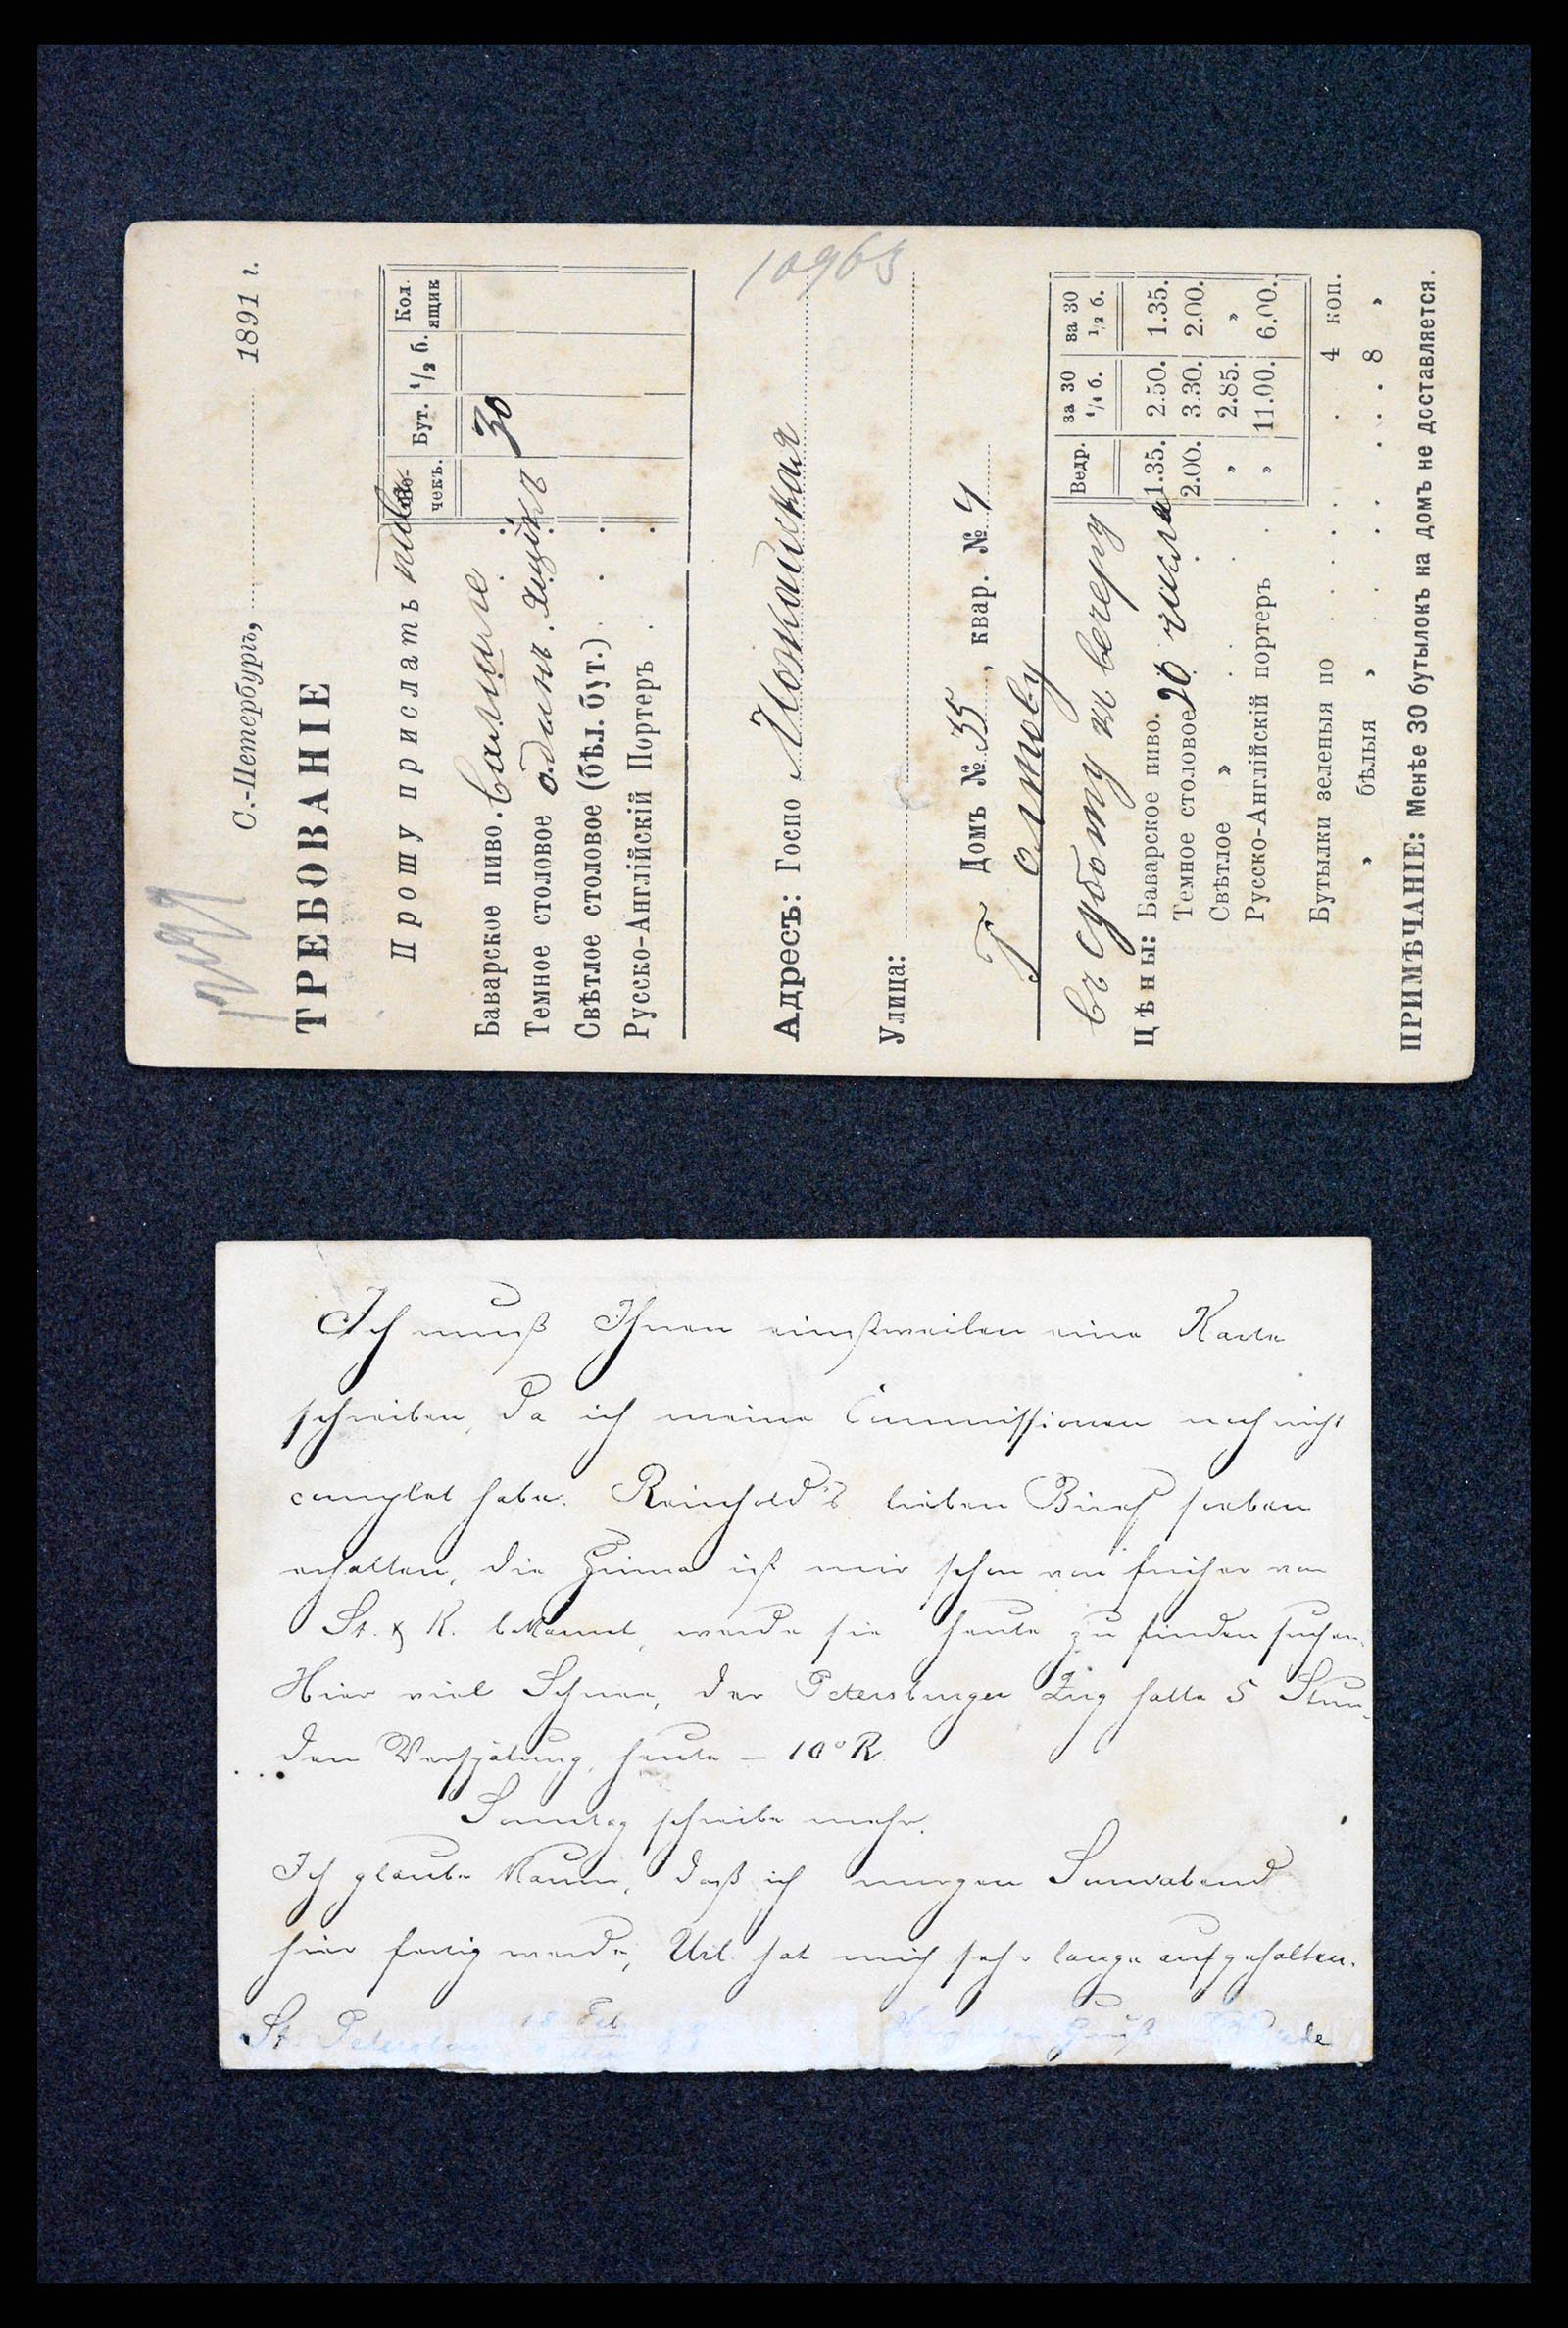 С.-Петербургъ, 1891 г.
ТРЕБОВАНІЕ
Прошу прислать пива
Бо-
чекъ. Бут. 1/2 б. Кол.
ящик
Баварское пиво. 30
Темное столовое одинъ ящикъ
Свѣтлое столовое (бѣл. бут.)
Русско-Англійскій Портеръ
10963
Адресъ: Госпо Можайская
Улица:
Домъ № 35, квар. № 4
Г
въ суботу къ вечеру
20 числа
Ведр. за 30 1/1 б. за 30 1/2 б.
Цѣны: Баварское пиво. 1.35. 2.50. 1.35.
Темное столовое 2.00. 3.30. 2.00.
Свѣтлое » » 2.85. »
Русско-Англійскій портеръ » 11.00. 6.00.
Бутылки зеленыя по 4 коп.
» бѣлыя » 8 »
ПРИМѢЧАНІЕ: Менѣе 30 бутылокъ на домъ не доставляется.
Ich muß Ihnen einstweilen eine Karte
schreiben, da ich meine Commissionen noch nicht
complet habe. Reinhold's lieben Brief soeben
erhalten, die Firma ist mir schon von früher von
St. & K. bekannt, werde sie heute zu finden suchen.
Hier viel Schnee, der Petersburger Zug hatte 5 Stun-
den Verspätung, heute – 10° R.
Sonntag schreibe mehr.
Ich glaube kaum, daß ich morgen Sonnabend
hier fertig werde, hat mich sehr lange aufgehalten.
St. Petersburg 18 Feb Gruß